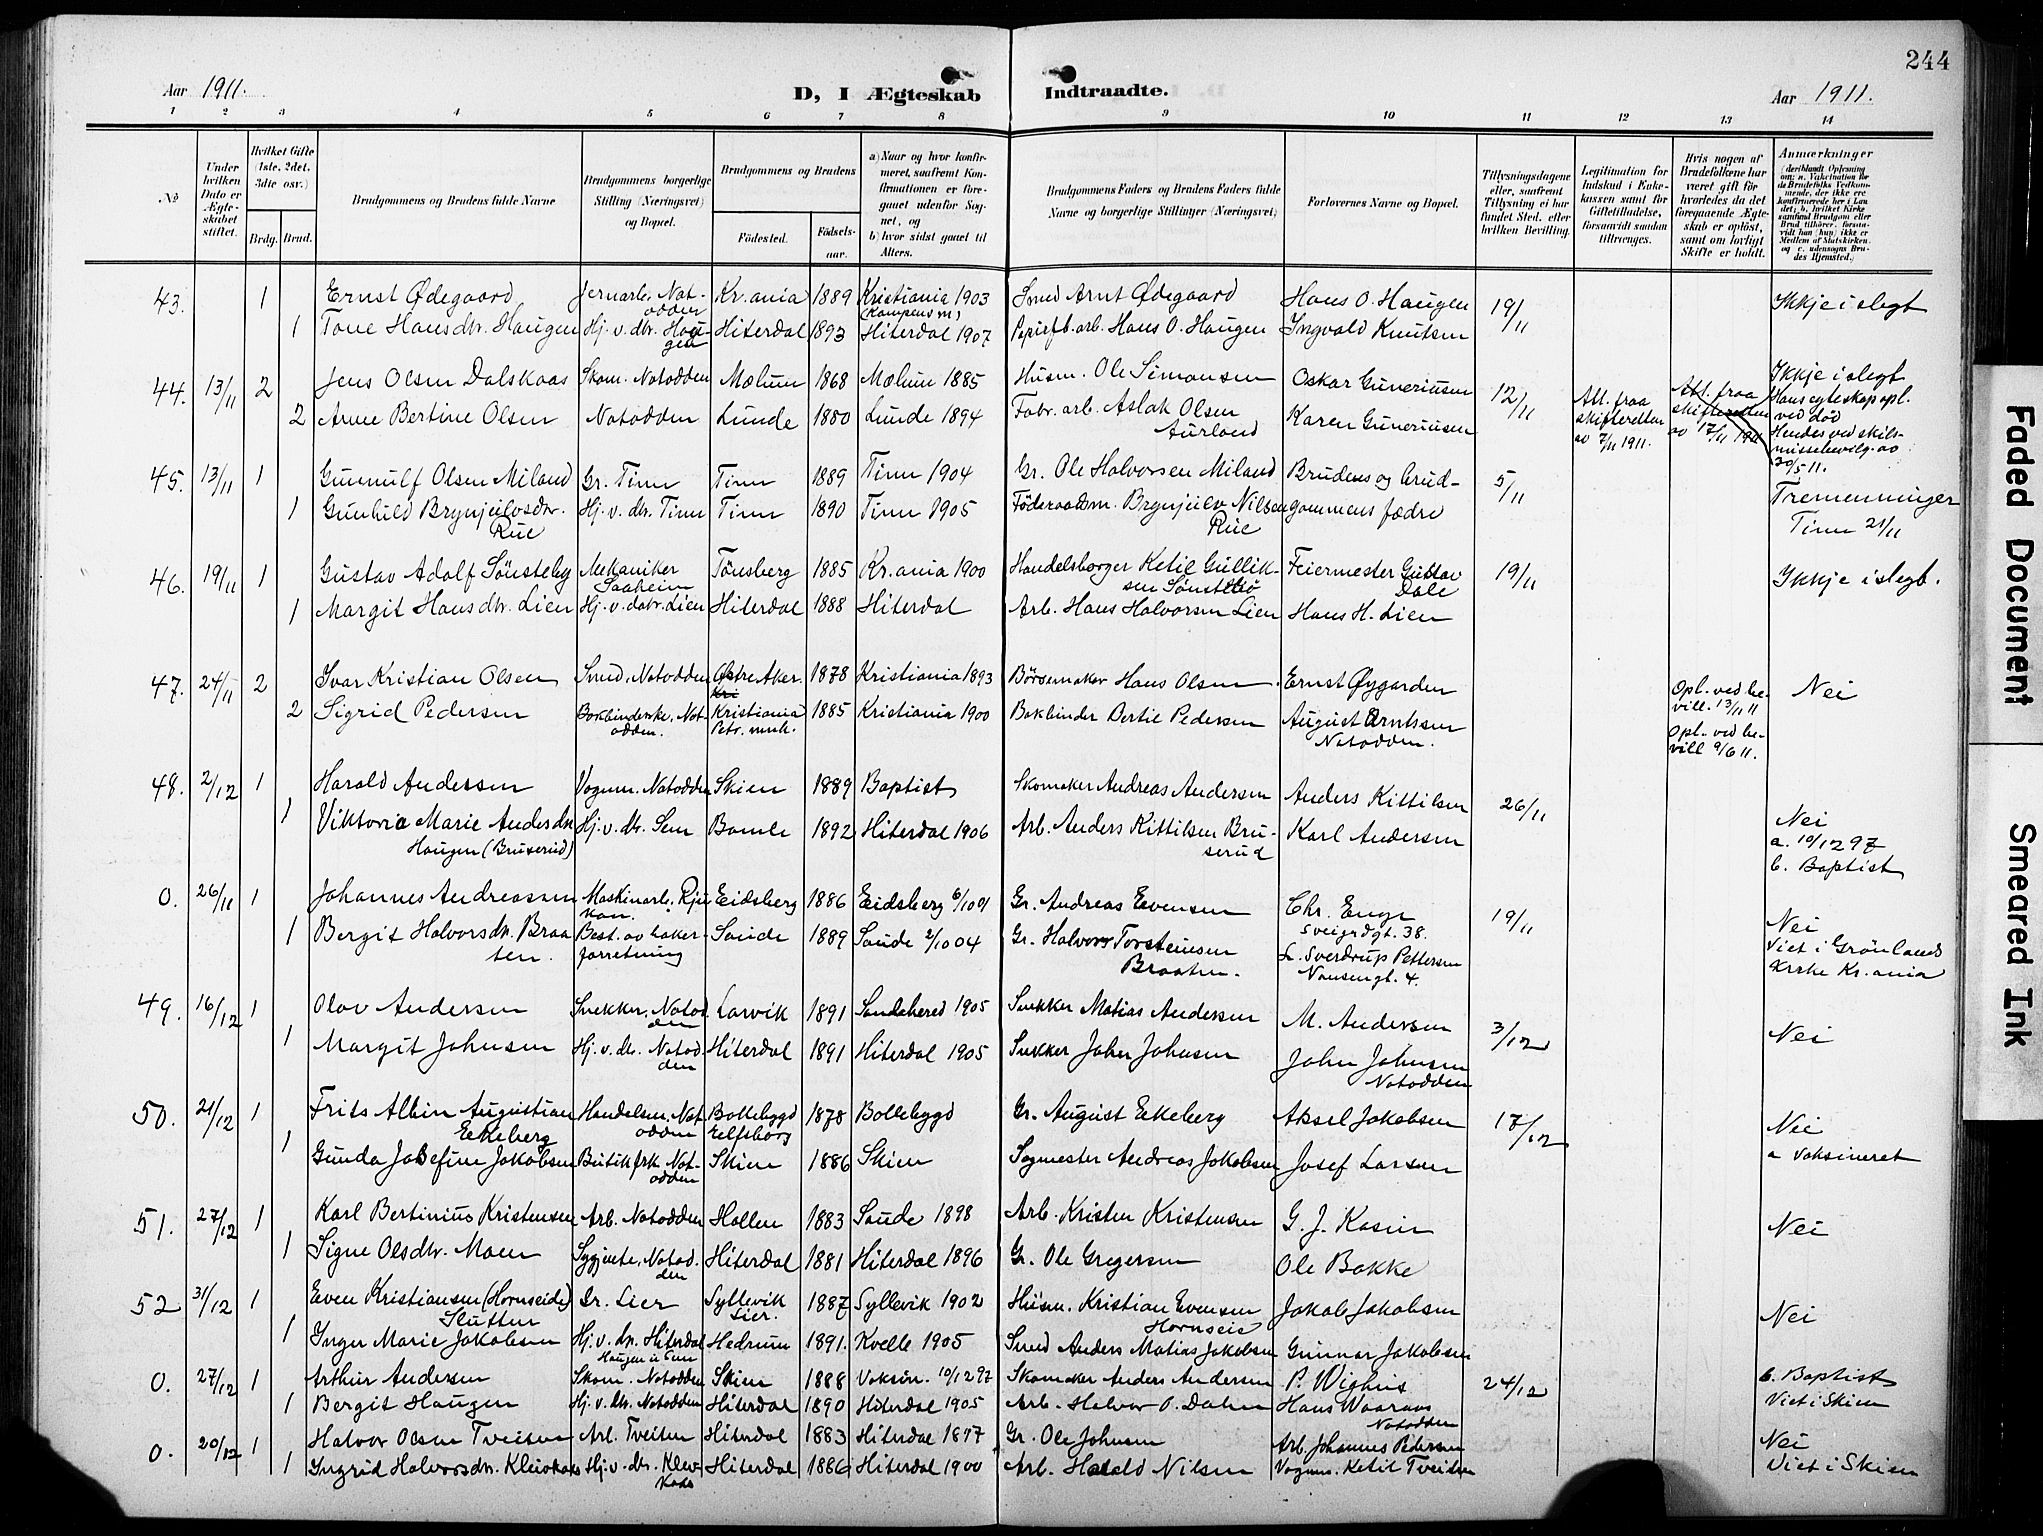 244
Aar 1911.
D, I Ægteskab Indtraadte.
Aar 1911.
1 2 3 4 5 6 7 8 9 10 11 12 13 14
No
Under hvilken Dato er Ægteskabet stiftet.
Hvilket Gifte (1ste, 2det, 3die osv.)
Brdg. Brud.
Brudgommens og Brudens fulde Navne
Brudgommens borgerlige Stilling (Næringsvei) og Bopæl.
Brudgommens og Brudens
Fødested. Fødselsaar.
a) Naar og hvor konfirmeret, saafremt Konfirmationen er foregaaet udenfor Sognet, og
b) hvor sidst gaaet til Alters.
Brudgommens Faders og Brudens Faders fulde Navne og borgerlige Stillinger (Næringsvei)
Forlovernes Navne og Bopæl.
Tillysningsdagene eller, saafremt Tillysning ei har fundet Sted, efter hvilken Bevilling.
Legitimation for Indskud i Enkekassen samt for Giftetilladelse, forsaavidt saadan tiltrænges.
Hvis nogen af Brudefolkene har været gift før hvorledes da det foregaaende Ægteskab er opløst, samt om lovligt Skifte er holdt.
Anmærkninger
43. 1 Ernst Ødegaard Jernarb. Notodden Kr.ania 1889 Kristiania 1903 (Kampens m) Smed Arnt Ødegaard Hans O. Haugen 19/11 Ikkje i slegt
1 Tone Hansdtr. Haugen Hj. v. dtr. Haugen Hiterdal 1893 Hiterdal 1907 Papirfb. arb. Hans O. Haugen Ingvald Knutsen
44. 13/11 2 Jens Olsen Dalskaas Skom. Notodden Mælum 1868 Mælum 1885 Husm. Ole Simonsen Oskar Gunerinsen 12/11 Att. fraa skifteretten av 7/11 1911. Att. fraa skifteretten av 17/11 1911 Ikkje i slegt Hans egteskap opl. ved død Hendes ved skilsmissebevilg. av 20/5 11.
2 Anne Bertine Olsen Notodden Lunde 1880 Lunde 1894 Fabr. arb. Aslak Olsen Aurland Karen Gunerinsen
45. 13/11 1 Gunnulf Olsen Miland Gr. Tinn Tinn 1889 Tinn 1904 Gr. Ole Halvorsen Miland Brudens og brudgommens fædre 5/11 Tremenninger Tinn 21/11
1 Gunhild Brynjulvsdtr. Rue Hj. v. dtr. Tinn Tinn 1890 Tinn 1905 Föderaadsm. Brynjulv Nilsen Rue
46. 19/11 1 Gustav Adolf Sönsteby Mekaniker Saaheim Tönsberg 1885 Kr.ania 1900 Handelsborger Ketil Gulliksen Sönstebø Feiermester Gustav Dale 19/11 Ikkje i slegt.
1 Margit Hansdtr. Lien Hj. v. datr. Lien Hiterdal 1888 Hiterdal Arb. Hans Halvorsen Lien Hans H. Lien
47. 24/11 2 Ivar Kristian Olsen Smed, Notodden Østre Aker. 1878 Kristiania 1893 Börsemaker Hans Olsen Ernst Øygarden Opl. ved bevill. 13/11 11 Nei
2 Sigrid Pedersen Bokbinderske, Notodden. Kristiania Petr. menh. 1885 Kristiania 1900 Bokbinder Bertil Pedersen August Arntsen Notodden. Opl. ved bevill 9/6 11.
48. 2/12 1 Harald Andersen Vognm. Notodden Skien 1889 Baptist Skomaker Andreas Andersen Anders Kittilsen 26/11 Nei
1 Viktoria Marie Andersdtr. Haugen (Bruserud) Hj. v. dtr. Sem Bamle 1892 Hiterdal 1906 Arb. Anders Kittilsen Bruserud Karl Andersen a. 10/12 97 b. Baptist
0. 26/11 1 Johannes Andreassen Maskinarb. Rjukan. Eidsberg 1886 Eidsberg 6/10 01 Gr. Andreas Evensen Chr. Enge Sveigdgt. 38. 19/11 Nei
1 Bergit Halvorsdtr. Braaten. Best. av bakerforretning Saude 1889 Saude 2/10 04 Gr. Halvor Torsteinsen Braaten. L. Sverdrup Pettersen Nansengt. 4. Viet i Grönlands kirke Kr.ania
49. 16/12 1 Olav Andersen Snekker, Notodden Larvik 1891 Sandehered 1905 Snekker Matias Andersen M. Andersen 3/12 Nei
1 Margit Johnsen Hj. v. dtr. Notodden Hiterdal 1891 Hiterdal 1905 Snekker John Johnsen John Johnsen Notodden
50. 21/12 1 Frits Albin Augustian Eekeberg Handelsm. Notodden Bollebygd Elfsborg 1878 Bollebygd Gr. August Eekeberg Aksel Jakobsen 17/12 Nei
1 Gunda Josefine Jakobsen Butikfrk. Notodden Skien 1886 Skien Sagmester Andreas Jakobsen Josef Larsen a vaksineret
51. 27/12 1 Karl Bertinius Kristensen Arb. Notodden Hollen 1883 Saude 1898 Arb. Kristen Kristensen G. J. Kasin Nei
1 Signe Olsdtr. Moen Sygjente, Notodden Hiterdal 1881 Hiterdal 1896 Gr. Ole Gregersen Ole Bakke
52 31/12 1 Even Kristiansen (Hornseide) Slutten Dr. Lier Syllevik Lier. 1887 Syllevik 1902 Husm. Kristian Evensen Hornseie Jakob Jakobsen Nei
1 Inger Marie Jakobsen Hj. v. dtr. Hiterdal Haugen u Sem Hedrum 1891. Kvelle 1905 Smed Anders Matias Jakobsen Gunnar Jakobsen
0. 27/12 1 Arthur Andersen Skom. Notodden Skien 1888 Vaksin. 10/12 97 Skomaker Anders Andersen P. Wighus 24/12 b. Baptist
1 Bergit Haugen Hj. v. dtr. Notodden Hiterdal 1890 Hiterdal 1905 Arb. Halvor O. Dahn Hans Waaraas Notodden Viet i Skien
0. 20/12 1 Halvor Olsen Tveiten Arb. Tveiten Hiterdal 1883 Hiterdal 1897 Gr. Ole Johnsen Arb. Johannes Pedersen Nei
1 Ingrid Halvorsdtr. Kleivkaas Hj. v. dtr. Kleivkaas Hiterdal 1886 Hiterdal 1900 Arb. Harald Nilsen Vognm. Ketil Tveiten Viet i Skien
Faded Document
Smeared Ink